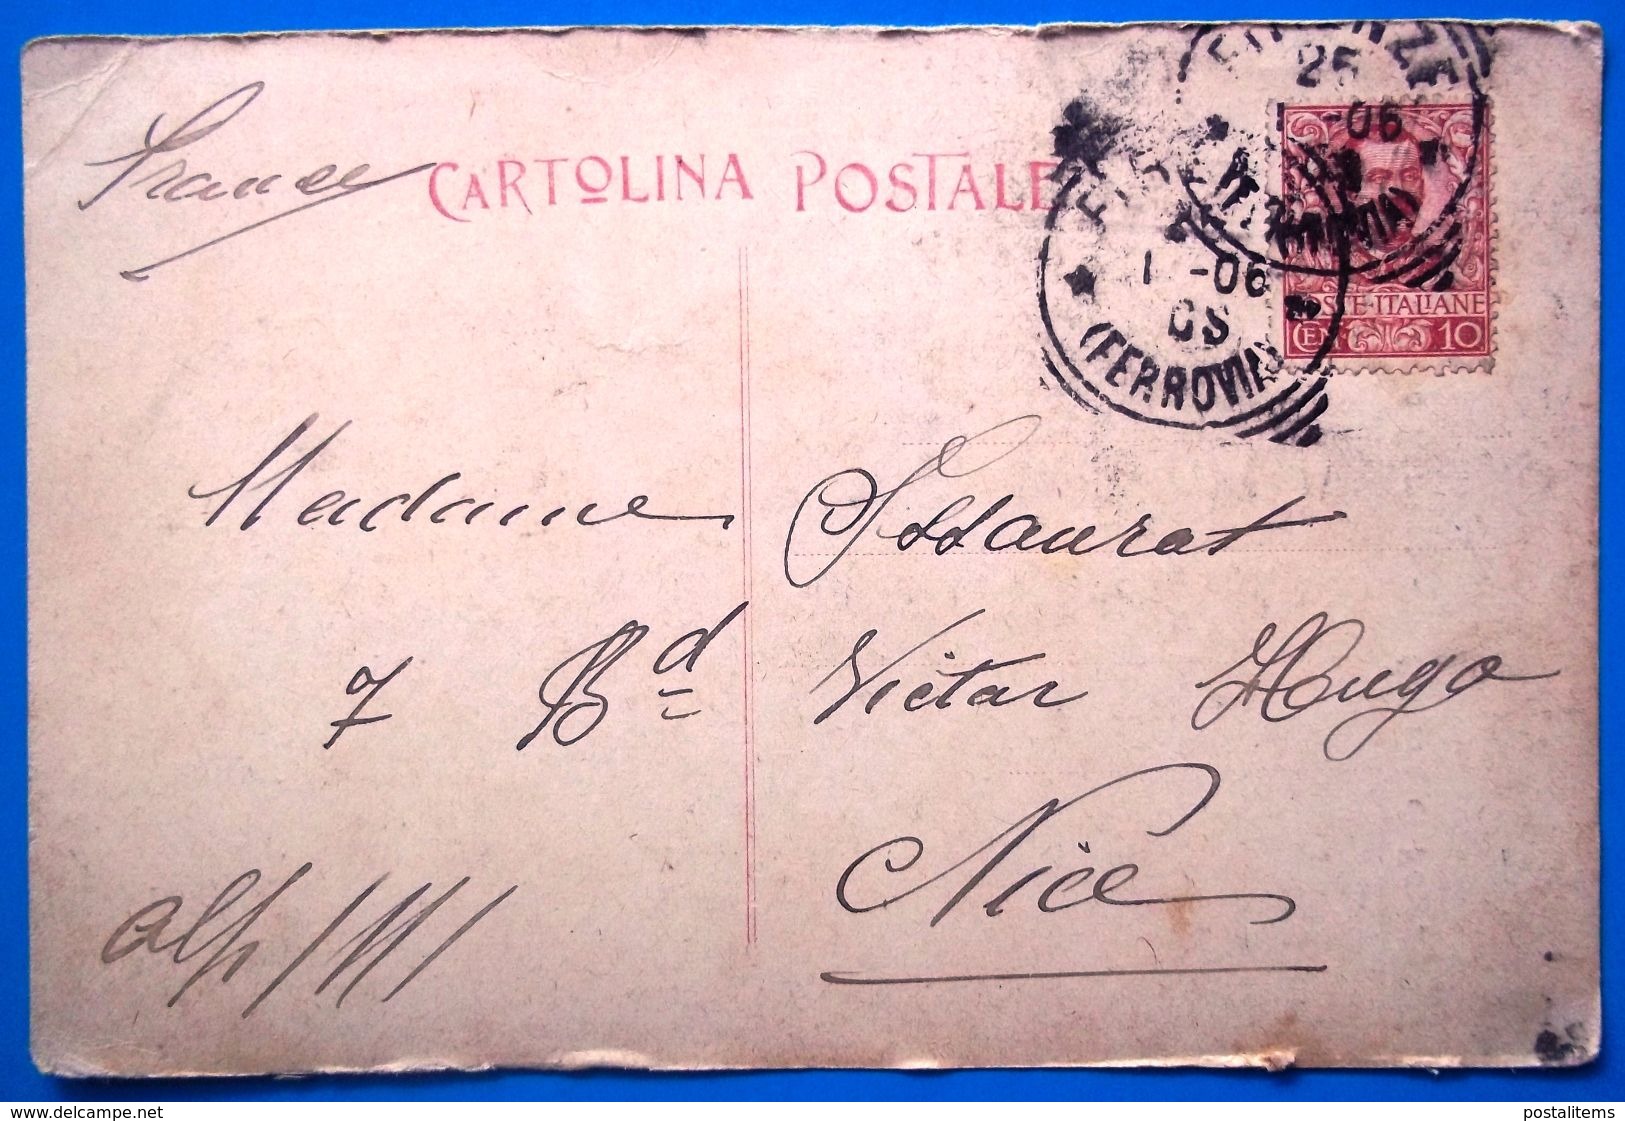 France
CARTOLINA POSTALE
FIRENZE
25
-06
(FERROVIA)
1 -06
(FERROVIA)
POSTE·ITALIANE
CEN 10
Madame
7 Bd Victor Hugo
Nice
www.delcampe.net
postalitems